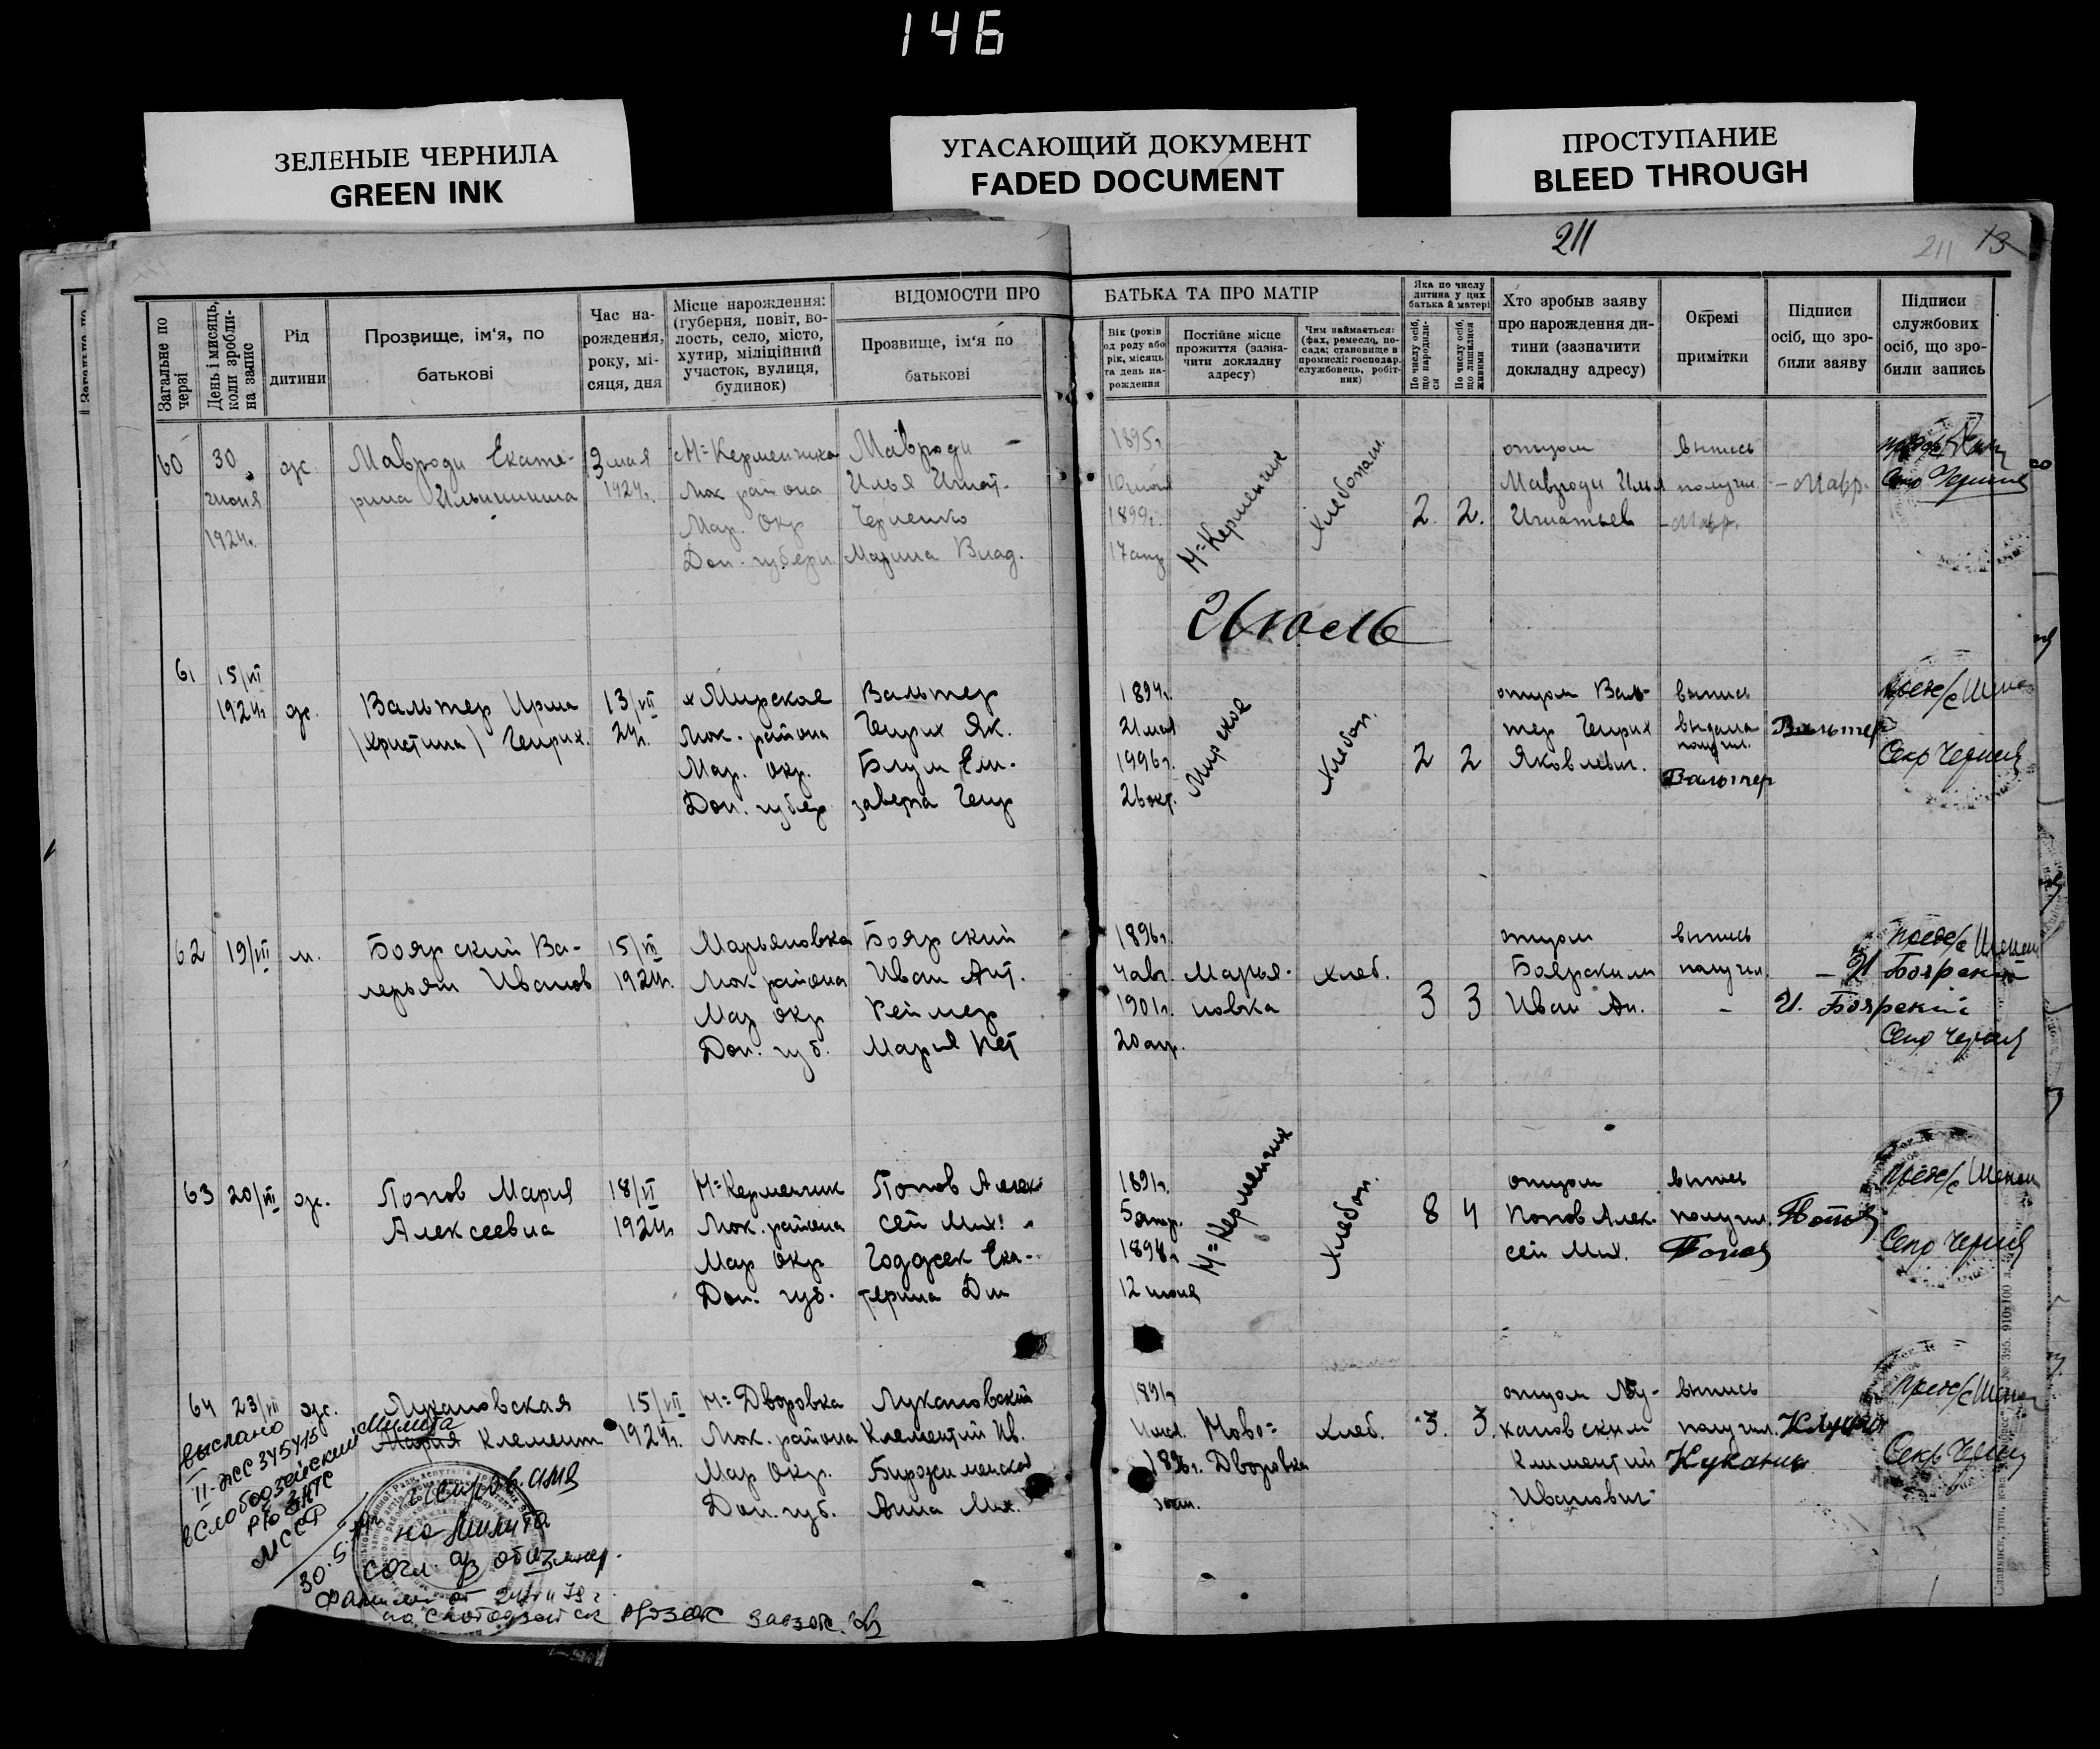 146
ЗЕЛЕНЫЕ ЧЕРНИЛА
GREEN INK
УГАСАЮЩИЙ ДОКУМЕНТ
FADED DOCUMENT
ПРОСТУПАНИЕ
BLEED THROUGH
211
211 13
ВІДОМОСТИ ПРО БАТЬКА ТА ПРО МАТІР
Загальне по черзі
День і мисяць, коли зробли- на запис
Рід
дитини
Прозвище, ім'я, по
батькові
Час на-
рождення,
року, мі-
сяця, дня
Місце нарождення:
(губерня, повіт, во-
лость, село, місто,
хутир, міліційний
участок, вулиця,
будинок)
Прозвище, ім'я по
батькові
Вік (років
од роду або
рік, місяць
та день на-
рождення
Постійне місце
прожиття (зазна-
чити докладну
адресу)
Чим займається:
(фах, ремесло, по-
сада; становище в
промислі: господар,
службовець, робіт-
ник)
Яка по числу
дитина у цих
батька й матері
По числу осіб,
що народили-
ся
По числу осіб,
що лишилися
живими
Хто зробыв заяву
про нарождення ди-
тини (зазначити
докладну адресу)
Окремі
примітки
Підписи
осіб, що зро-
били заяву
Підписи
службових
осіб, що зро-
били запись
60
30
июня
1924г.
ж
Мавроди Екате-
рина Ильинична
3 мая
1924г.
М=Керменчика
Мок района
Мар. Окр
Дон. губерн
Мавроди
Илья Игнат.
Черненко
Марина Влад.
1895г
10 июн
1899г.
17 апр
М=Керменчик
Хлебопаш.
2. 2.
отцом
Мавроди Илья
Игнатьев
выпись
получил.
- Мавр.
- Мавр.
Секр Черныш
Июль
61
15/VII
1924г
ж.
Вальтер Ирма
(Христина) Генрих.
13/VII
24г.
х Мирское
Мок. района
Мар. окр.
Дон. губер
Вальтер
Генрих Як.
Блум Ели-
завета Генр
1894г.
21 мая
1996г.
26 окт.
Мирское
Хлебоп.
2 2
отцом Валь-
тер Генрих
Яковлевич.
выпись
выдана
получил.
Вальтер
Вальтер
Секр Черныш
62
19/VII
м.
Боярский Ва-
лерьян Иванов
15/VII
1924г.
Марьяновка
Мок района
Мар окр
Дон. губ.
Боярский
Иван Ант.
Реймер
Мария Пет
1896г.
4 авг.
1901г.
20 апр.
Марья-
новка
Хлеб.
3 3
отцом
Боярским
Иван Ан.
выпись
получил.
-
- И Боярский
И. Боярский
Секр Черныш
63
20/VII
ж.
Попов Мария
Алексеевна
18/VI
1924г
М=Керменчик
Мок. района
Мар окр
Дон. губ.
Попов Алек-
сей Мих.
Годжек Ека-
терина Дм
1891г.
5 апр.
1894г
12 июня
М=Керменчик
Хлебоп.
8 4
отцом
Попов Алек-
сей Мих.
выпись
получил.
Попов
Попов
Секр Черныш
64
23/VII
ж.
Лукановская
Мария Клемент
Милита
15/VII
1924г.
Н=Дворовка
Мок. района
Мар Окр.
Дон. губ.
Лукановский
Клементий Ив.
Анна Мих.
1891г
Ново=
Дворовка
Хлеб.
3. 3.
отцом Лу-
кановским
Климентий
Иванович
выпись
получил.
Секр Черныш
выслано
II-ЖС 345415
в Слободзейский
р/о ЗАГС
МССР
30.5.
исправ. имя
на Милита